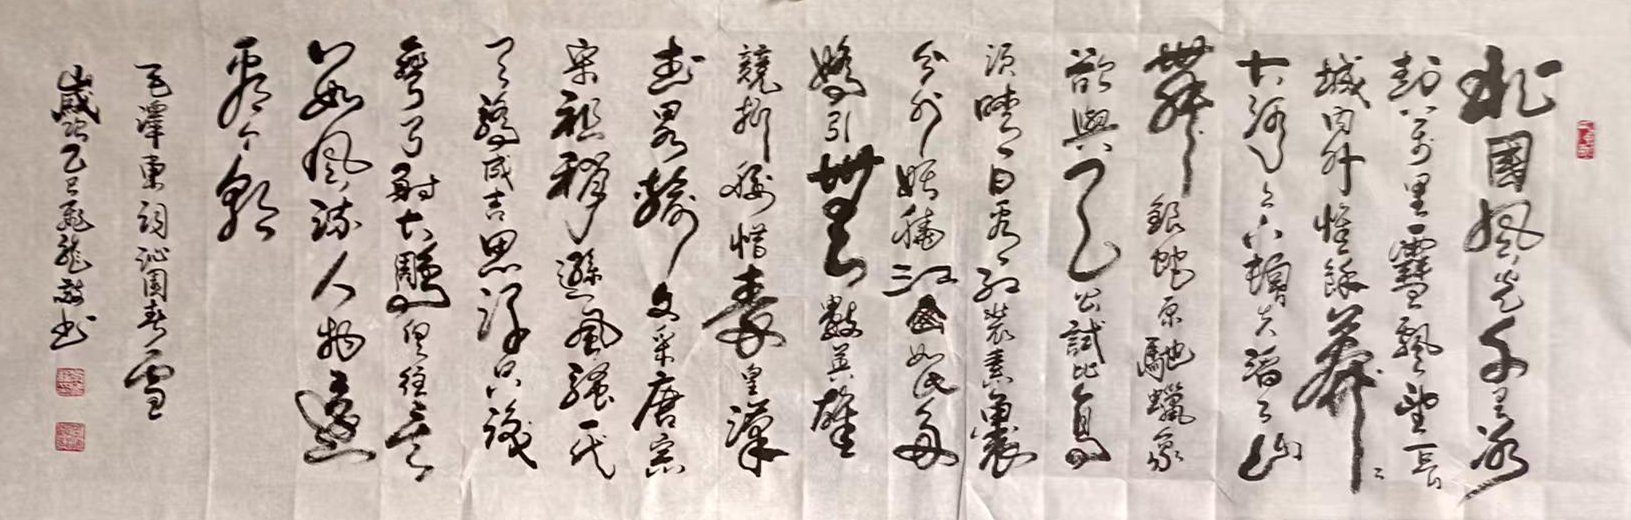 北國風光千里冰
封萬里雪飄望長
城内外惟餘莽〻
大河上下頓失滔〻山
舞銀蛇原馳蠟象
欲與天公試比高
須晴日看紅裝素裹
分外妖嬈江山如此多
嬌引無數英雄
競折腰惜秦皇漢
武畧輸文采唐宗
宋祖稍遜風騷一代
天驕成吉思汗只識
彎弓射大雕俱往矣
數風流人物還
看今朝
毛澤東詞沁園春雪
歲次乙巳飛龍敬书